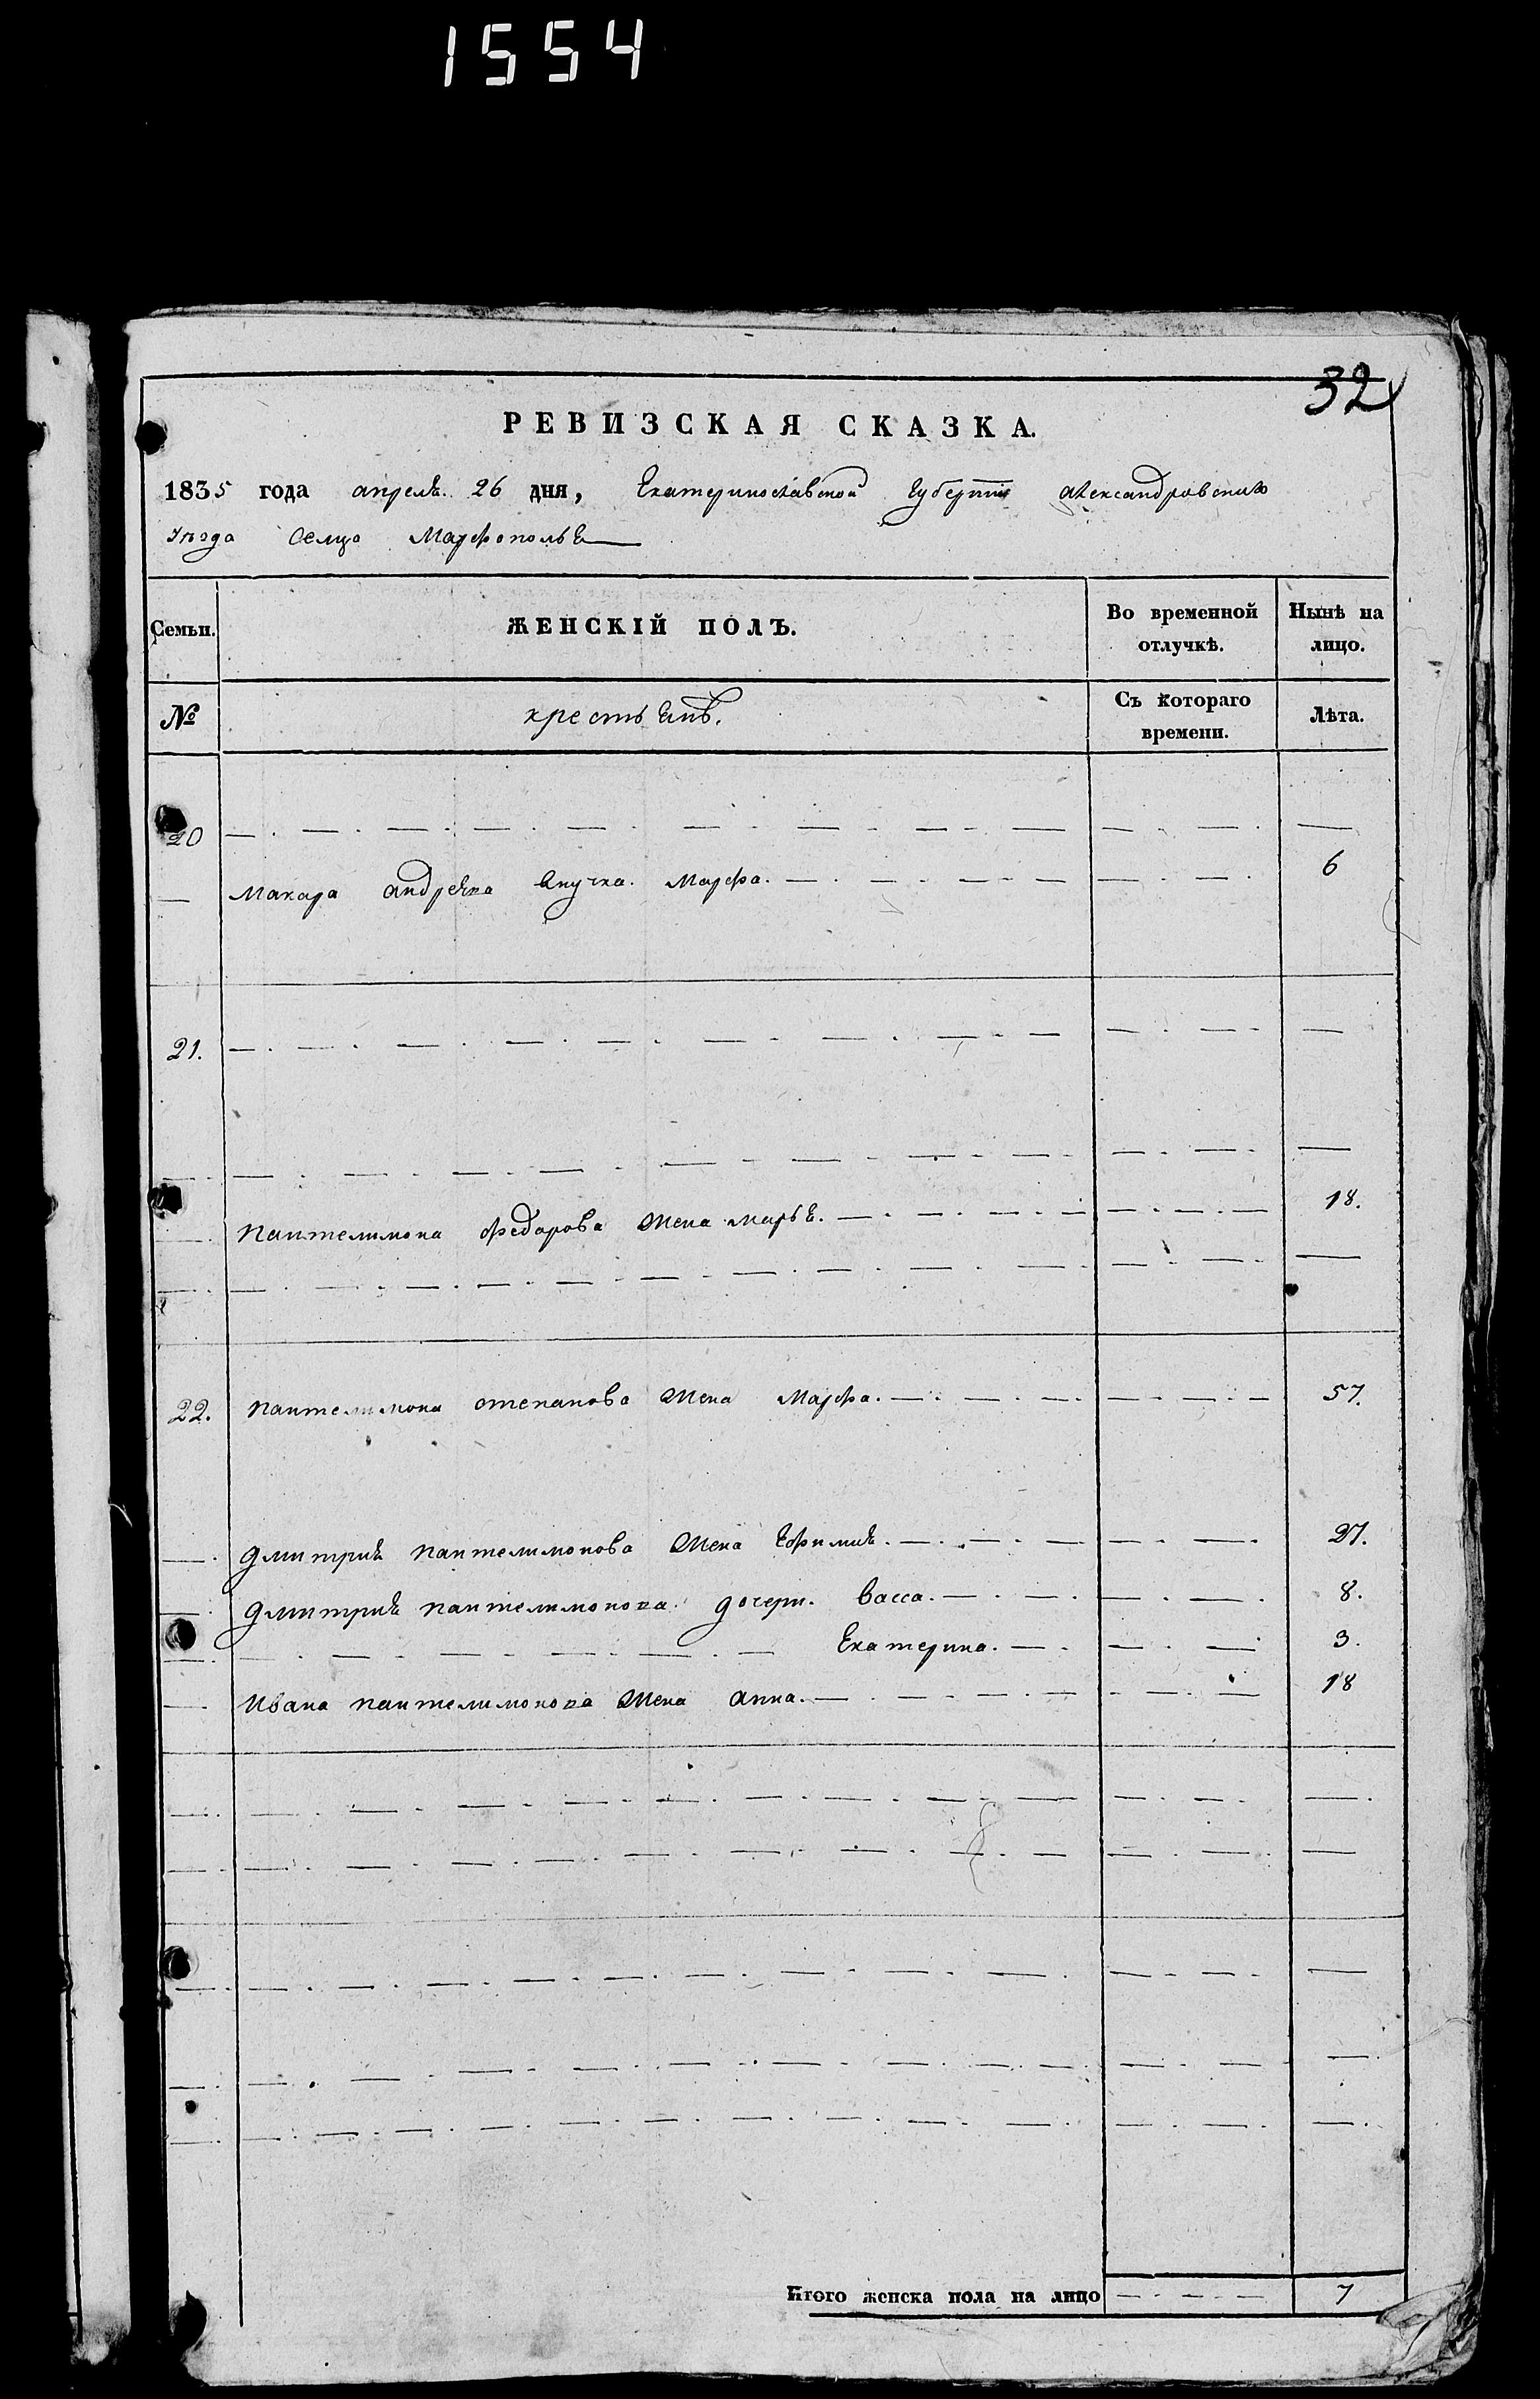 1554
32
РЕВИЗСКАЯ СКАЗКА.
1835 года апреля 26 дня, Екатеринославской Губернии Александровского
Уезда селцо Марфополье
Семьи. ЖЕНСКІЙ ПОЛЪ. Во временной отлучкѣ. Нынѣ на лицо.
№ крестьянъ. Съ котораго времени. Лѣта.
20 — . — . — . — . —
— Макара Андреева внучка. Марфа. — 6
21. — . — . — . — . —
— Пантелимона Федорова жена Марья. — 18.
22. Пантелимона Степанова жена Марфа. — 57.
— Дмитрия Пантелимонова жена Ефимия. — 27.
— Дмитрия Пантелимонова дочери. Васса. — 8.
— Екатерина. — 3.
— Ивана Пантелимонова жена Анна. — 18
Итого женска пола на лицо — 7